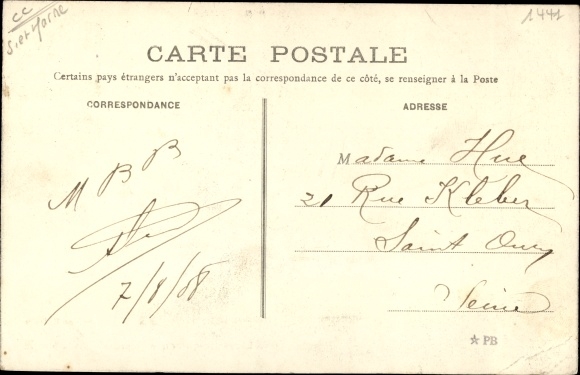 CC
S. et Marne
1441
CARTE POSTALE
Certains pays étrangers n'acceptant pas la correspondance de ce côté, se renseigner à la Poste
CORRESPONDANCE
M B B
7/8/08
ADRESSE
Madame Hue
21 Rue Kleber
Saint Ouen
Seine
PB